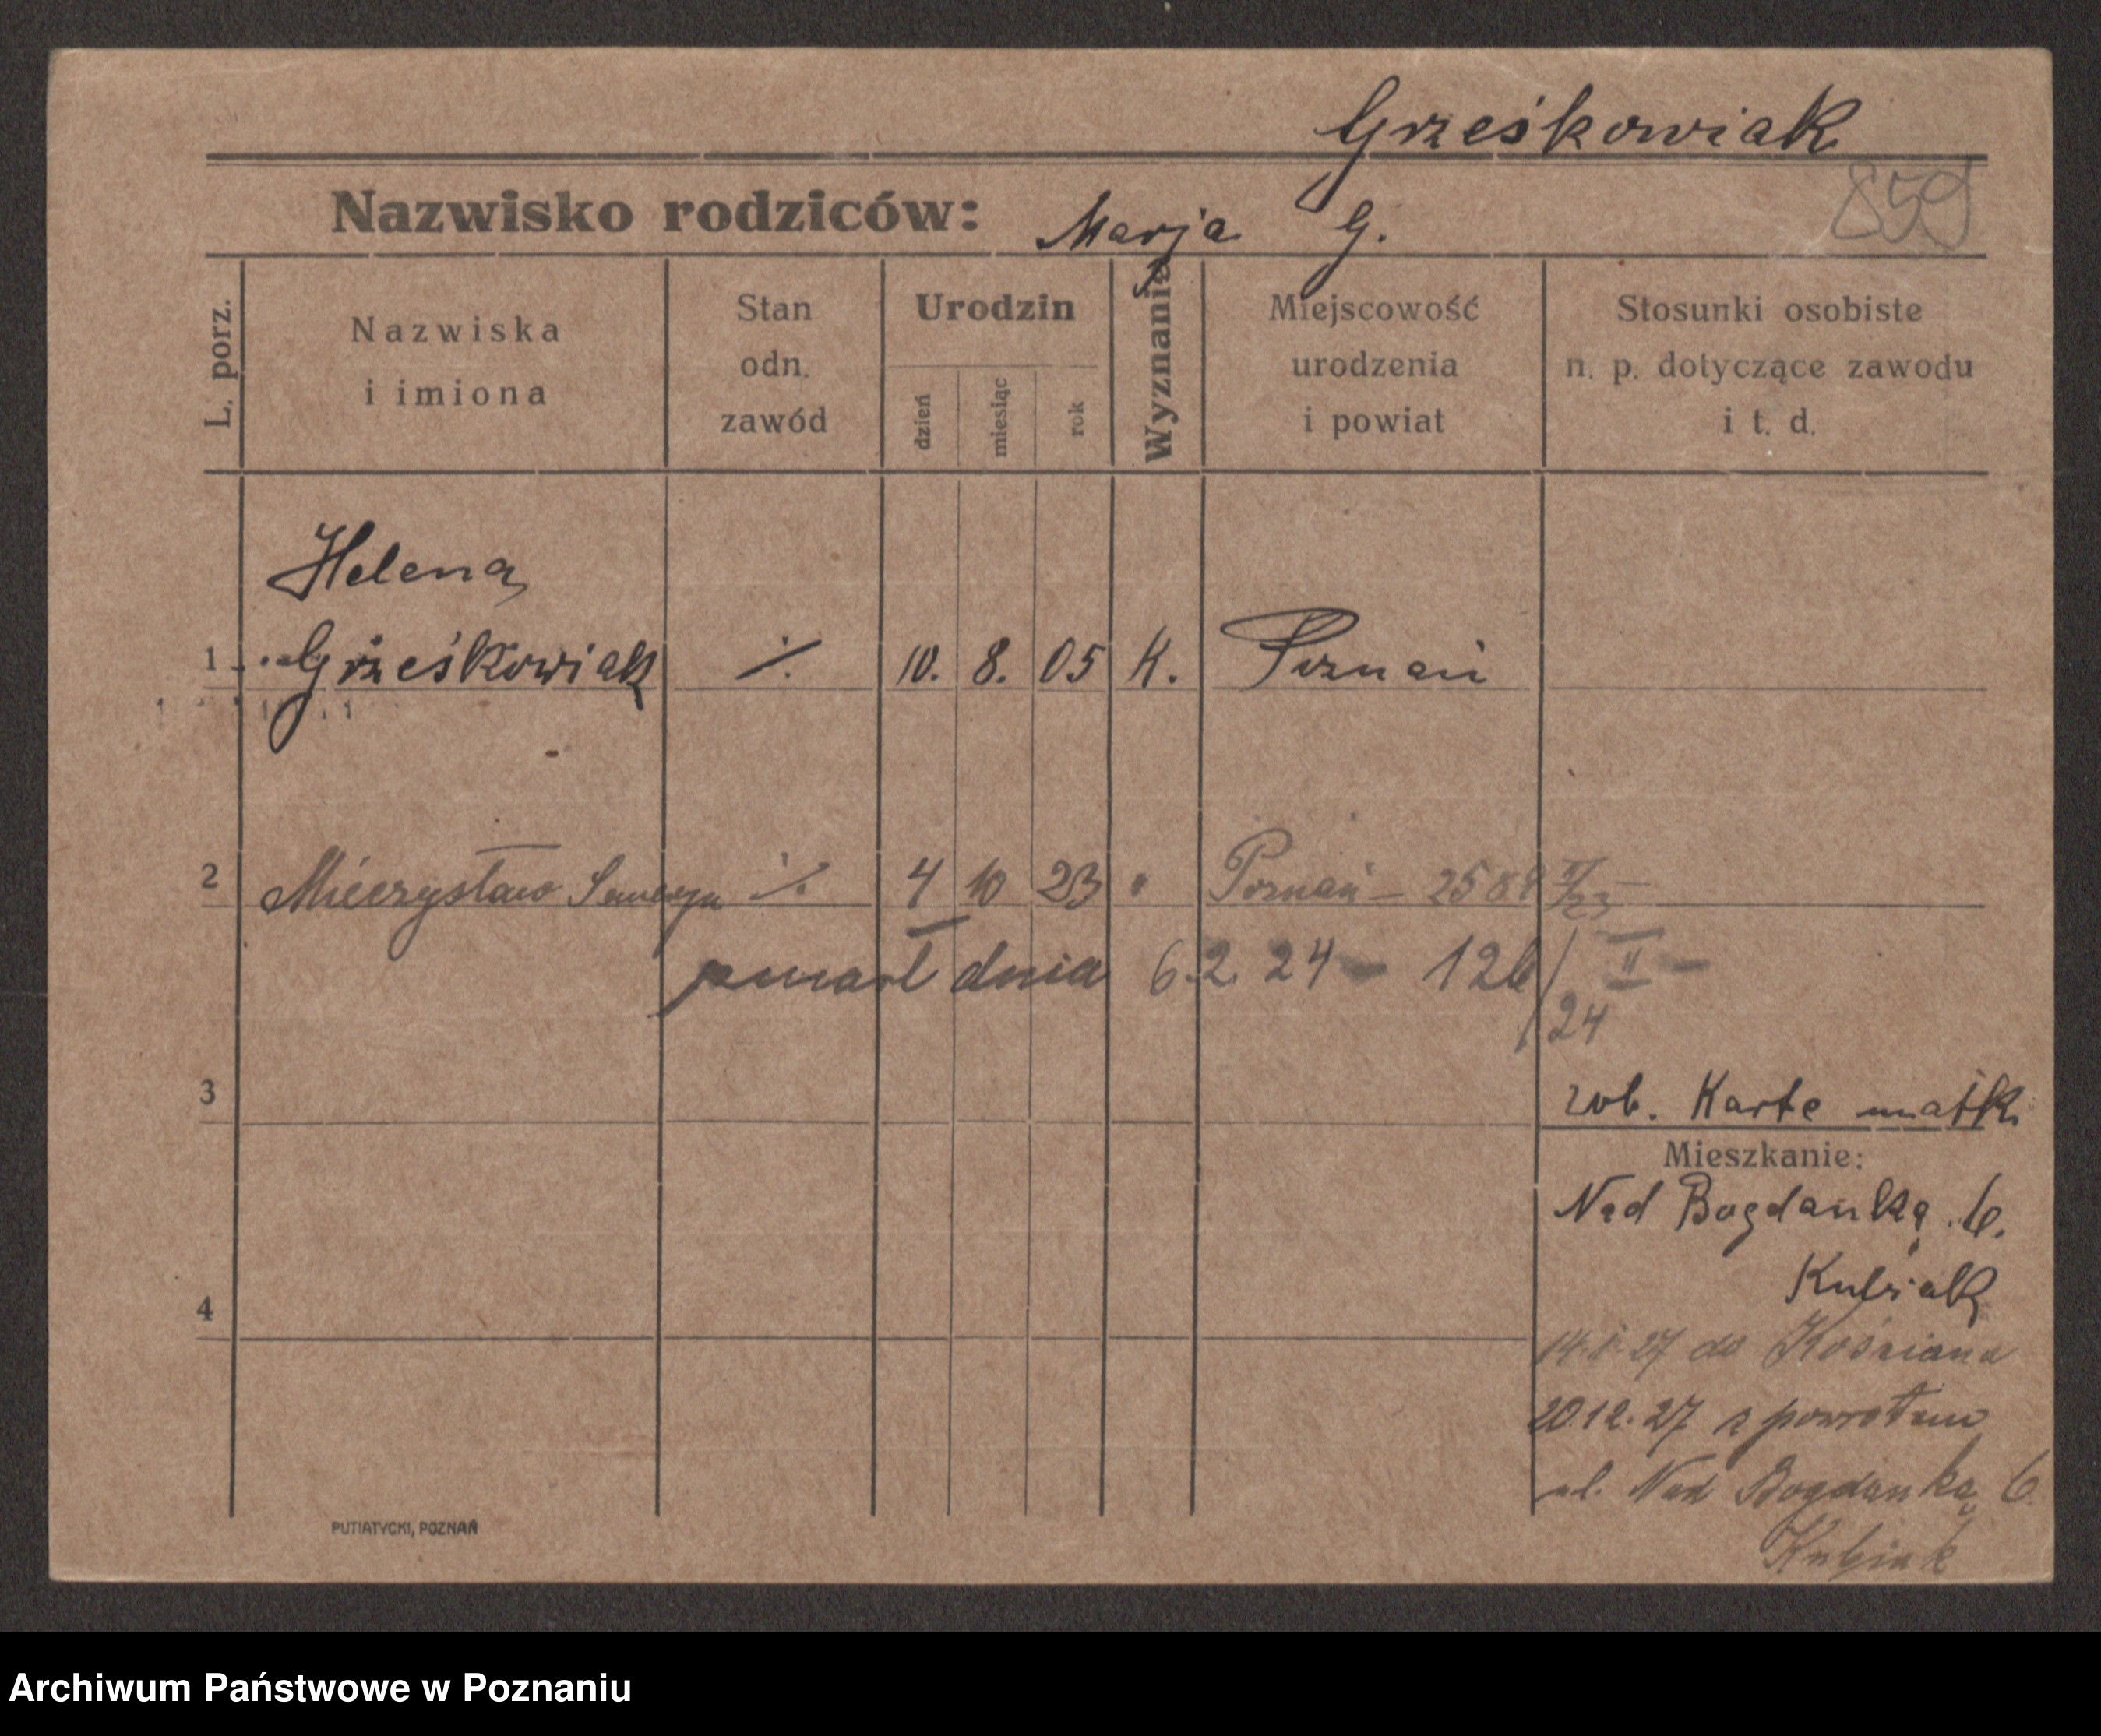 Grześkowiak
859
Nazwisko rodziców: Marja G.
L. porz.
Nazwiska
i imiona
Stan
odn.
zawód
Urodzin
dzień
miesiąc
rok
Wyznanie
Miejscowość
urodzenia
i powiat
Stosunki osobiste
n. p. dotyczące zawodu
i t. d.
Helena
1 Grześkowiak ./. 10. 8. 05 K. Poznań
2 Mieczysław Seweryn ./. 4 10 23 " Poznań – 2589 II/23
zmarł dnia 6.2.24 – 126/24 II –
3
zob. Karte matki
Mieszkanie:
Nad Bogdanką 6.
Kubiak
4
do Kościana
20.12.27 z powrotem
ul. Nad Bogdanką 6
Kubiak
PUTIATYCKI, POZNAŃ
Archiwum Państwowe w Poznaniu